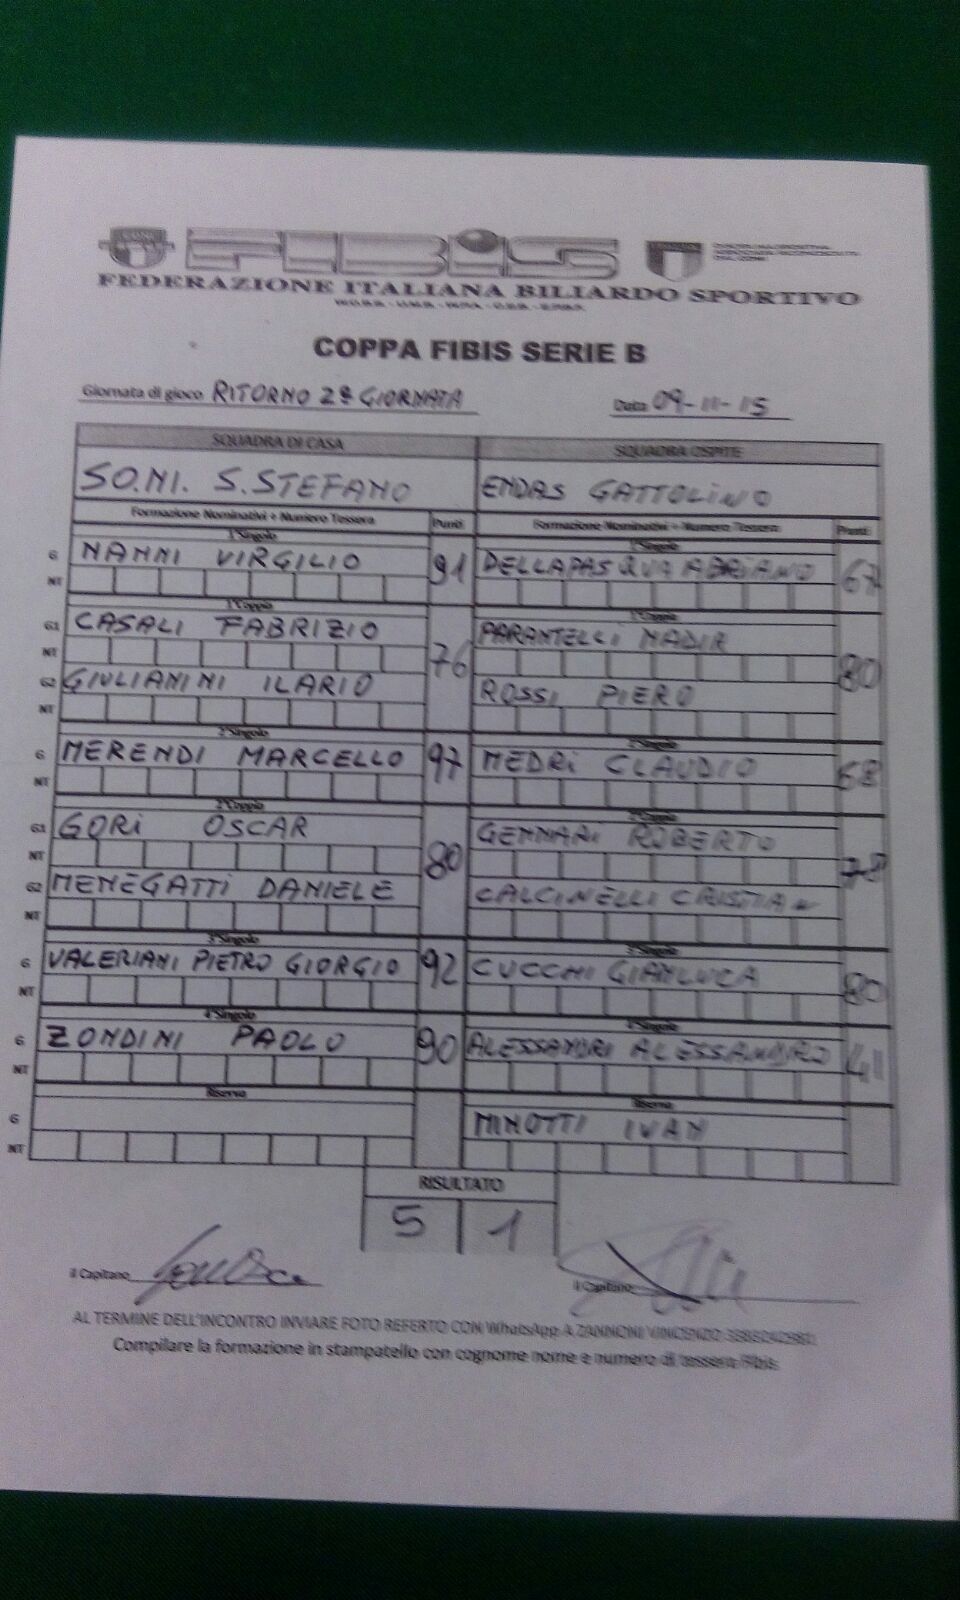 FIBIS
FEDERAZIONE ITALIANA BILIARDO SPORTIVO
COPPA FIBIS SERIE B
Giornata di gioco RITORNO 2ª GIORNATA Data 09-11-15
SQUADRA DI CASA SQUADRA OSPITE
SO.MI. S.STEFANO ENDAS GATTOLINO
Formazione Nominativi + Numero Tessera Punti Formazione Nominativi + Numero Tessera Punti
1°Singolo 1°Singolo
G NANNI VIRGILIO 91 DELLAPASQUA ADRIANO 67
NT
1°Coppia 1°Coppia
G1 CASALI FABRIZIO 76 PARANTELLI NADIR 80
NT
G2 GIULIANINI ILARIO ROSSI PIERO
NT
2°Singolo 2°Singolo
G MERENDI MARCELLO 97 MEDRI CLAUDIO 68
NT
2°Coppia 2°Coppia
G1 GORI OSCAR 80 GENNARI ROBERTO 78
NT
G2 MENEGATTI DANIELE CALCINELLI CRISTIAN
NT
3°Singolo 3°Singolo
G VALERIANI PIETRO GIORGIO 92 CUCCHI GIANLUCA 80
NT
4°Singolo 4°Singolo
G ZONDINI PAOLO 90 ALESSANDRI ALESSANDRO 41
NT
Riserva Riserva
G MINOTTI IVAN
NT
RISULTATO
5 1
il Capitano il Capitano
AL TERMINE DELL'INCONTRO INVIARE FOTO REFERTO CON WhatsApp A ZANNONI VINCENZO
Compilare la formazione in stampatello con cognome nome e numero di tessera Fibis